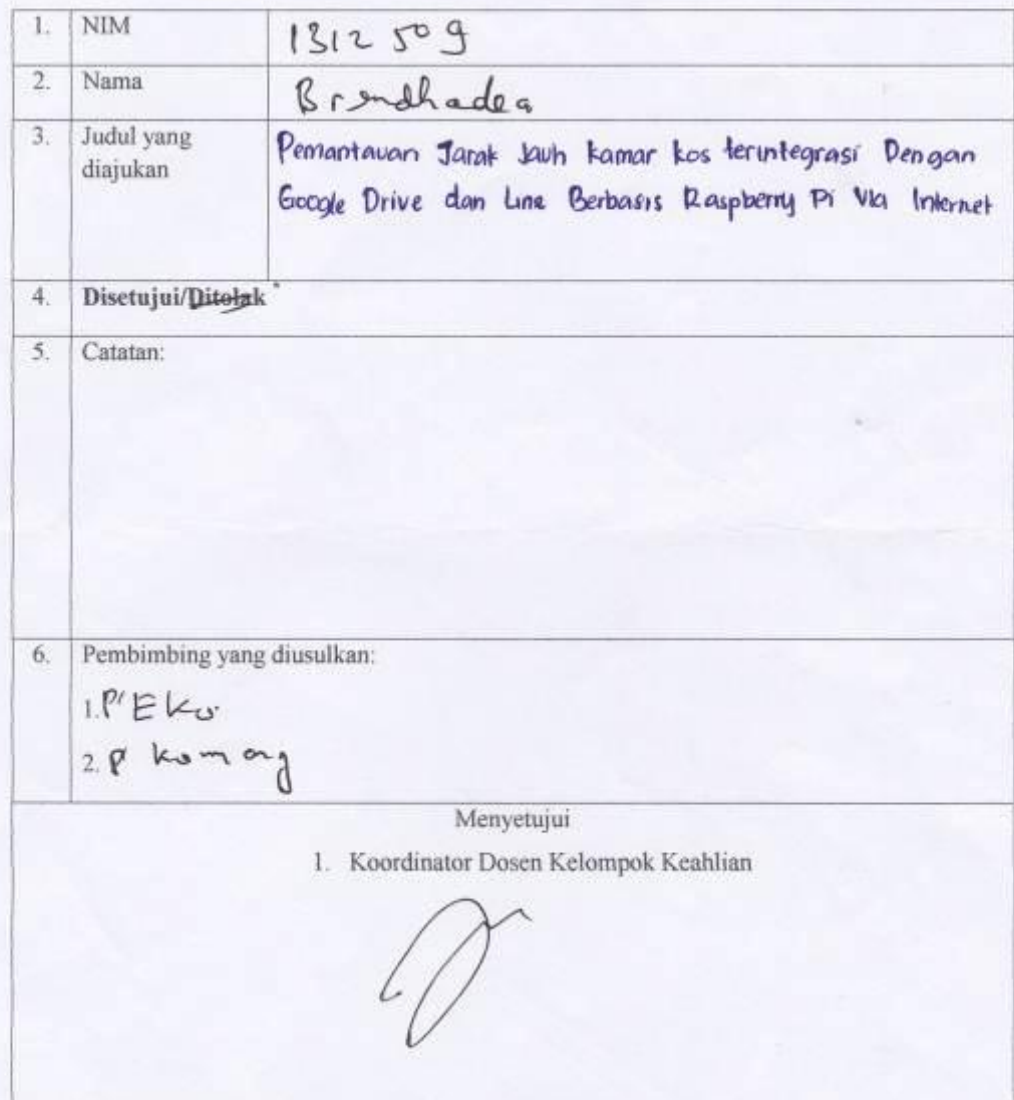 1. NIM 1312509
2. Nama Brendhadea
3. Judul yang diajukan Pemantauan Jarak Jauh kamar kos terintegrasi Dengan
Google Drive dan Line Berbasis Raspberry Pi Via Internet
4. Disetujui/Ditolak *
5. Catatan:
6. Pembimbing yang diusulkan:
1. P' Eko
2. P komang
Menyetujui
1. Koordinator Dosen Kelompok Keahlian